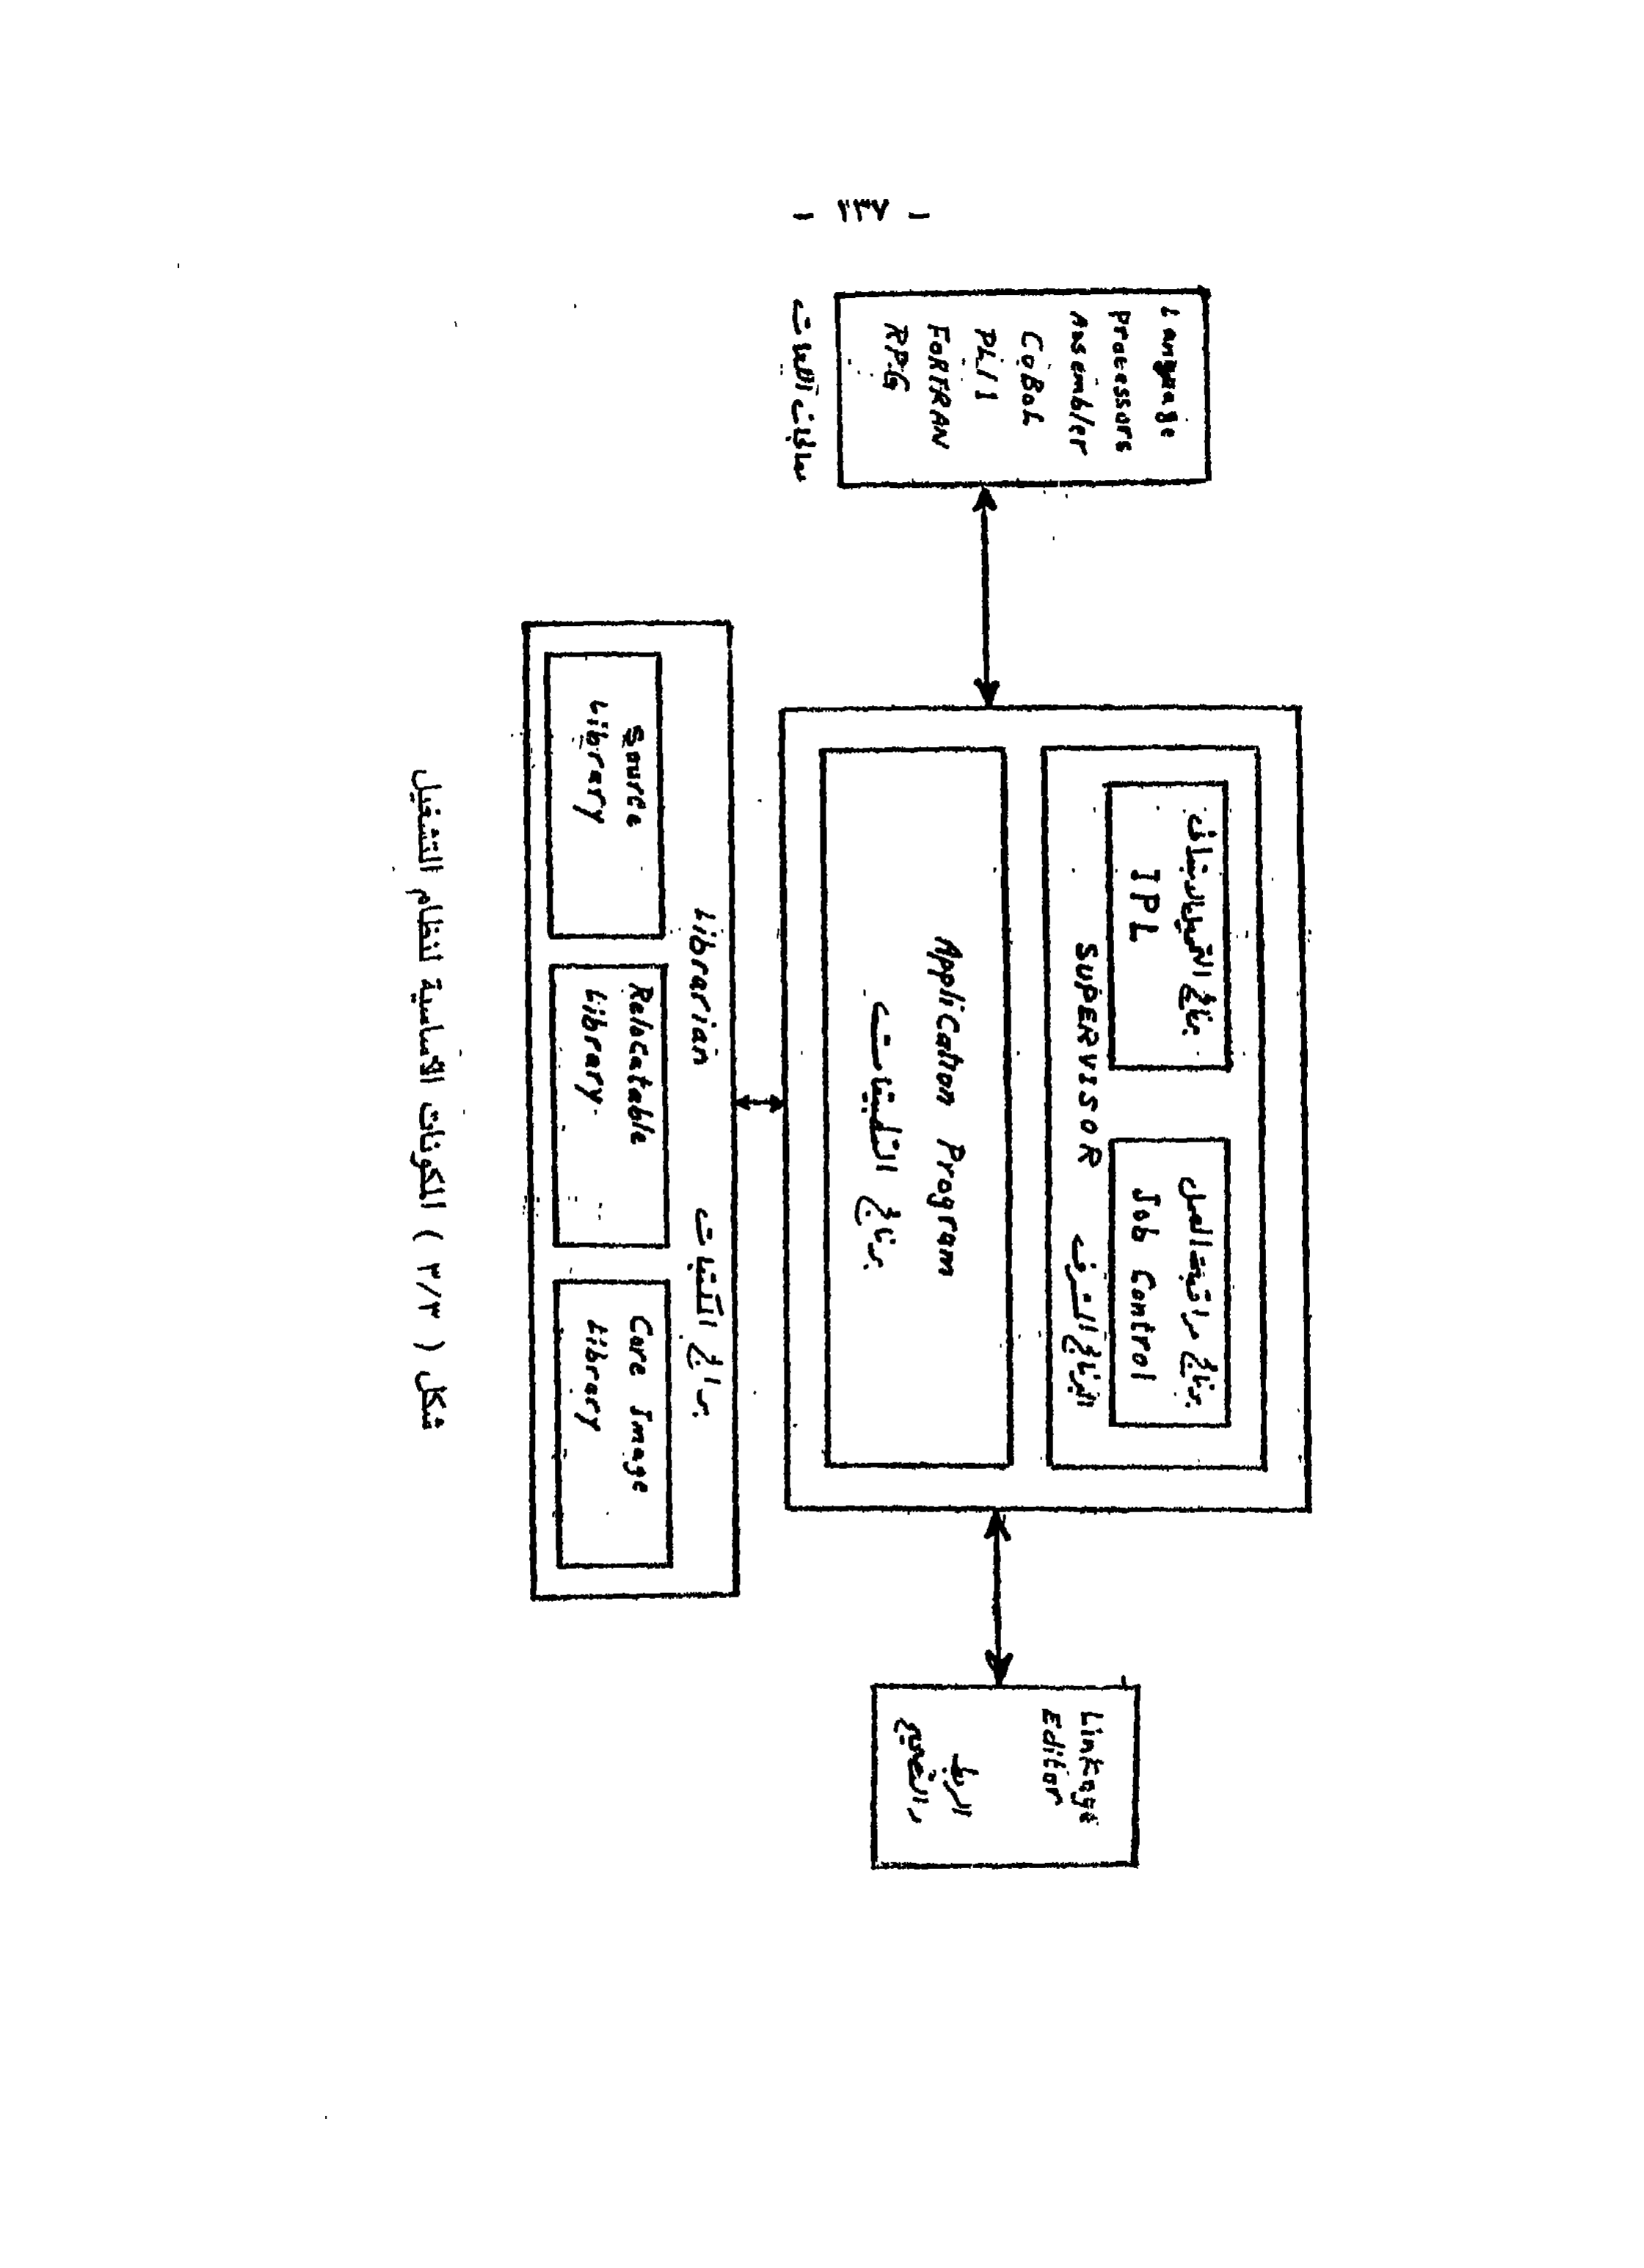 - ١٣٧ -
Language
Processors
Assembler
COBOL
PL/1
FORTRAN
RPG
معالجات اللغات
برنامج التحميل الابتدائى
IPL
برنامج مراقبة العمل
Job Control
SUPERVISOR البرنامج المشرف
Application Program
برنامج التطبيقات
Linkage
Editor
الربط
والتصحيح
Librarian برامج المكتبات
Source
Library
Relocatable
Library
Core Image
Library
شكل ( ٣/٣ ) المكونات الأساسية لنظام التشغيل